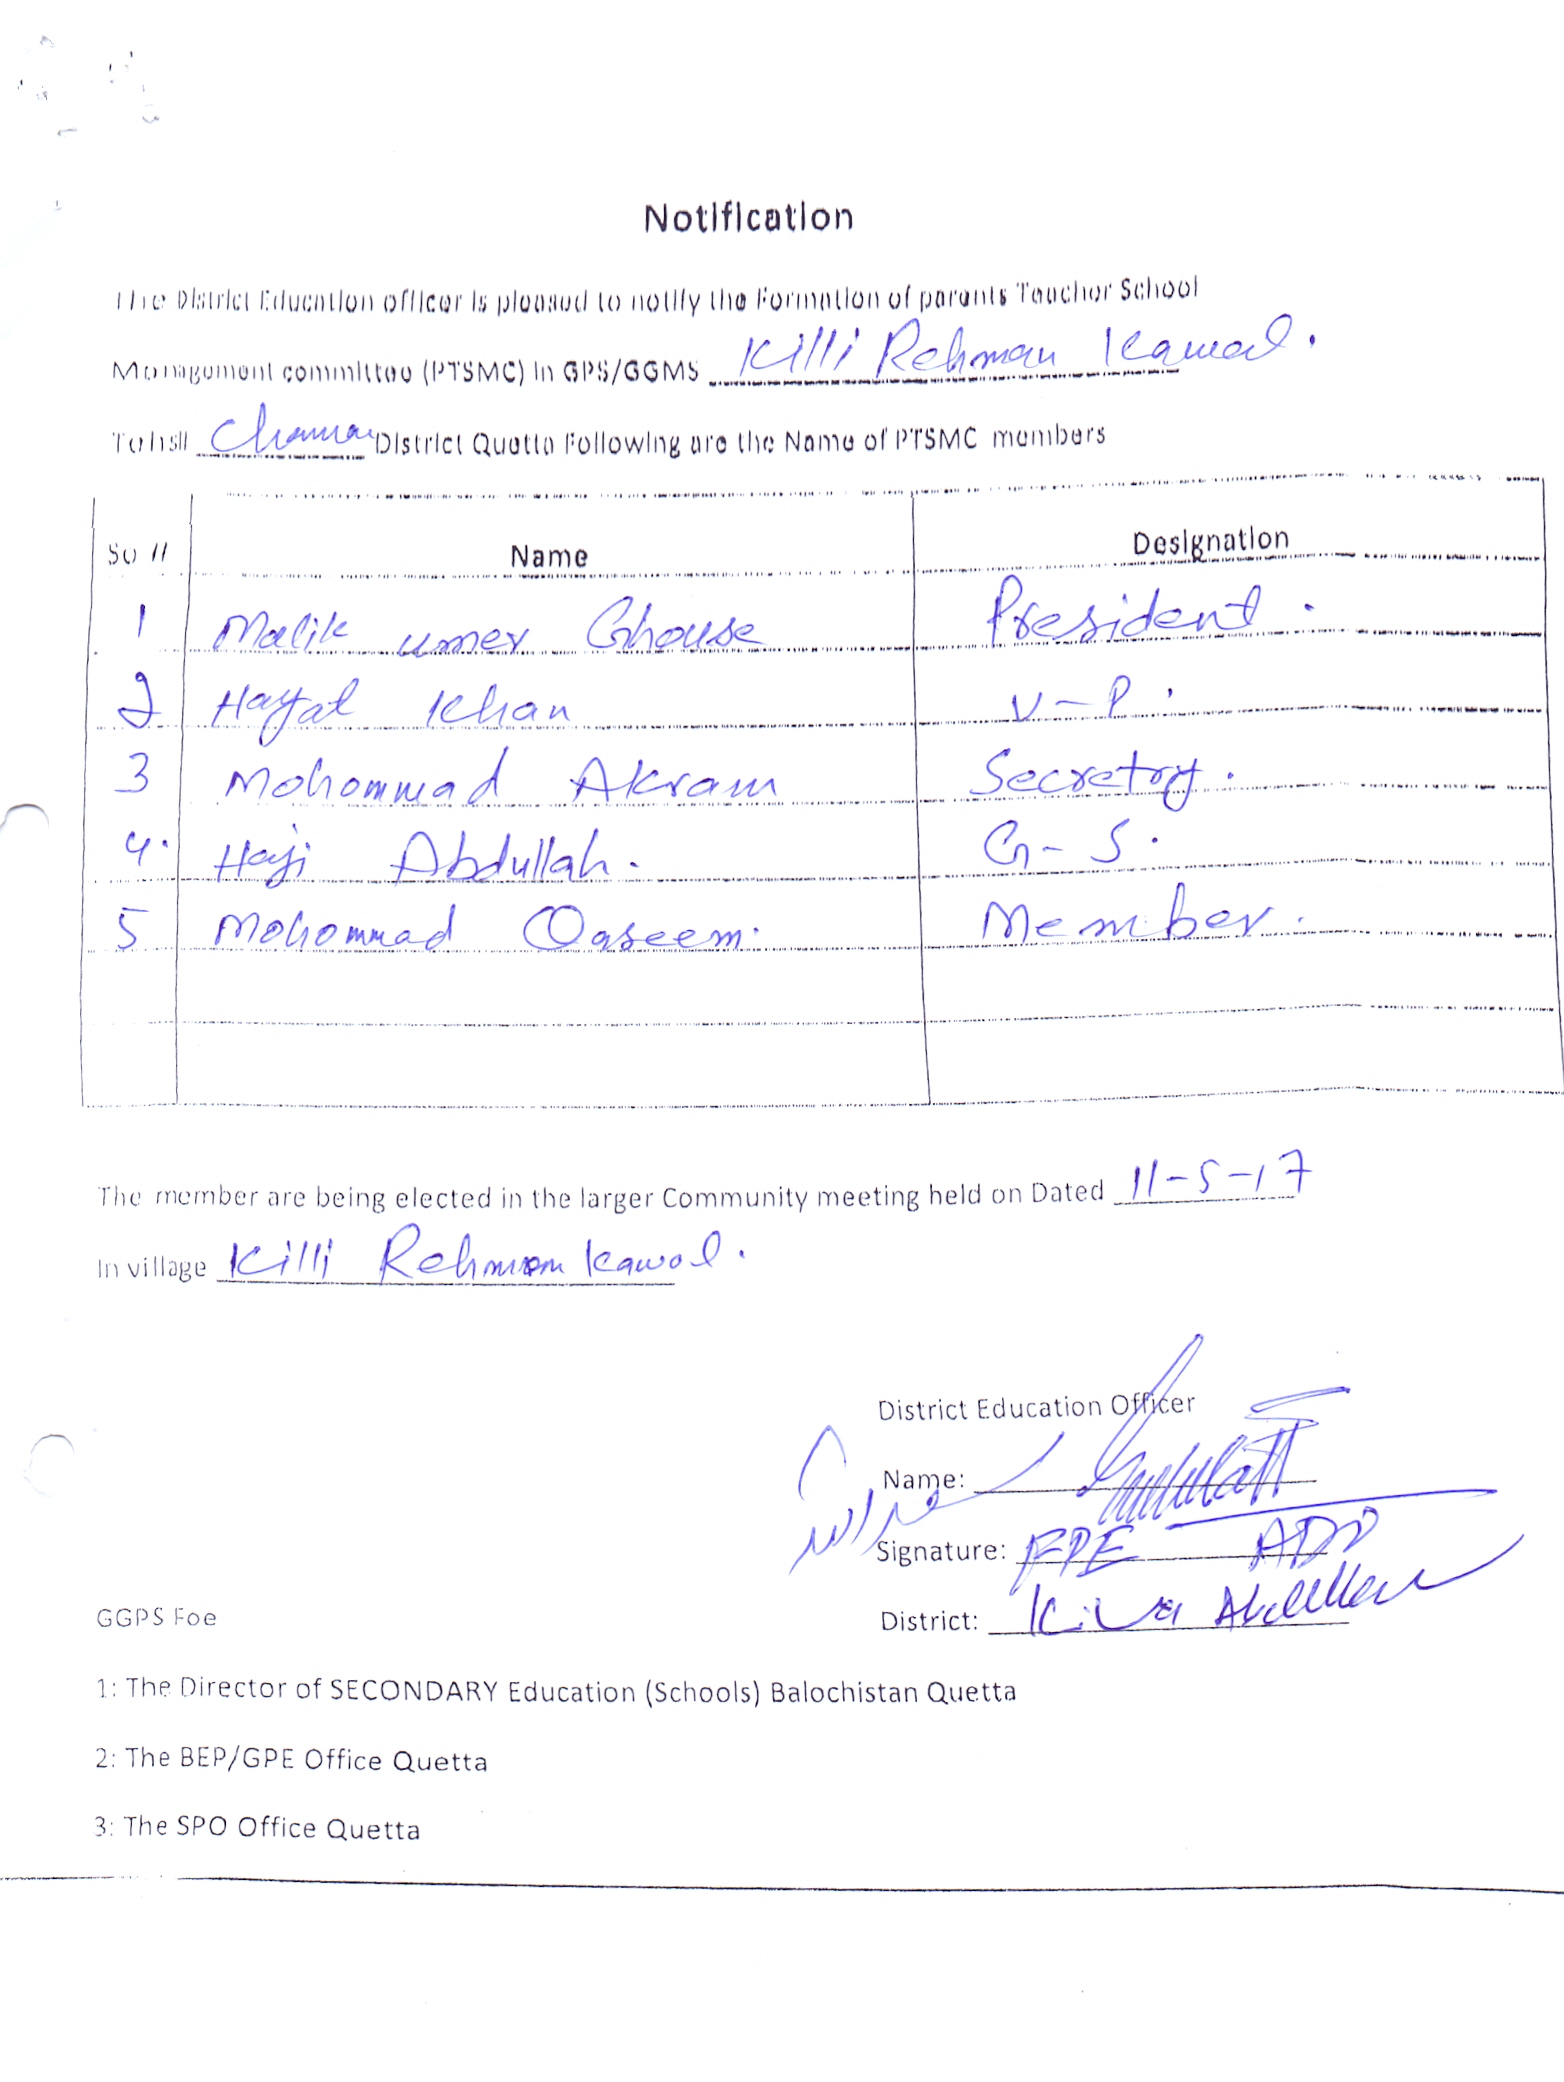 Notification
The District Education officer is pleased to notify the Formation of parents Teacher School
Management committee (PTSMC) in GPS/GGMS Killi Rehman Kawal.
Tehsil Chaman District Quetta Following are the Name of PTSMC members
Se # Name Designation
1 Malik umer Ghouse President.
2 Hayat Khan V-P.
3 Mohommad Akram Secretry.
4. Haji Abdullah. G-S.
5 Mohommad Qaseem. Member.
The member are being elected in the larger Community meeting held on Dated 11-5-17
In village Killi Rehman Kawal.
District Education Officer
Name:
Signature:
District: Killa Abdullah
GGPS Foe
1: The Director of SECONDARY Education (Schools) Balochistan Quetta
2: The BEP/GPE Office Quetta
3: The SPO Office Quetta